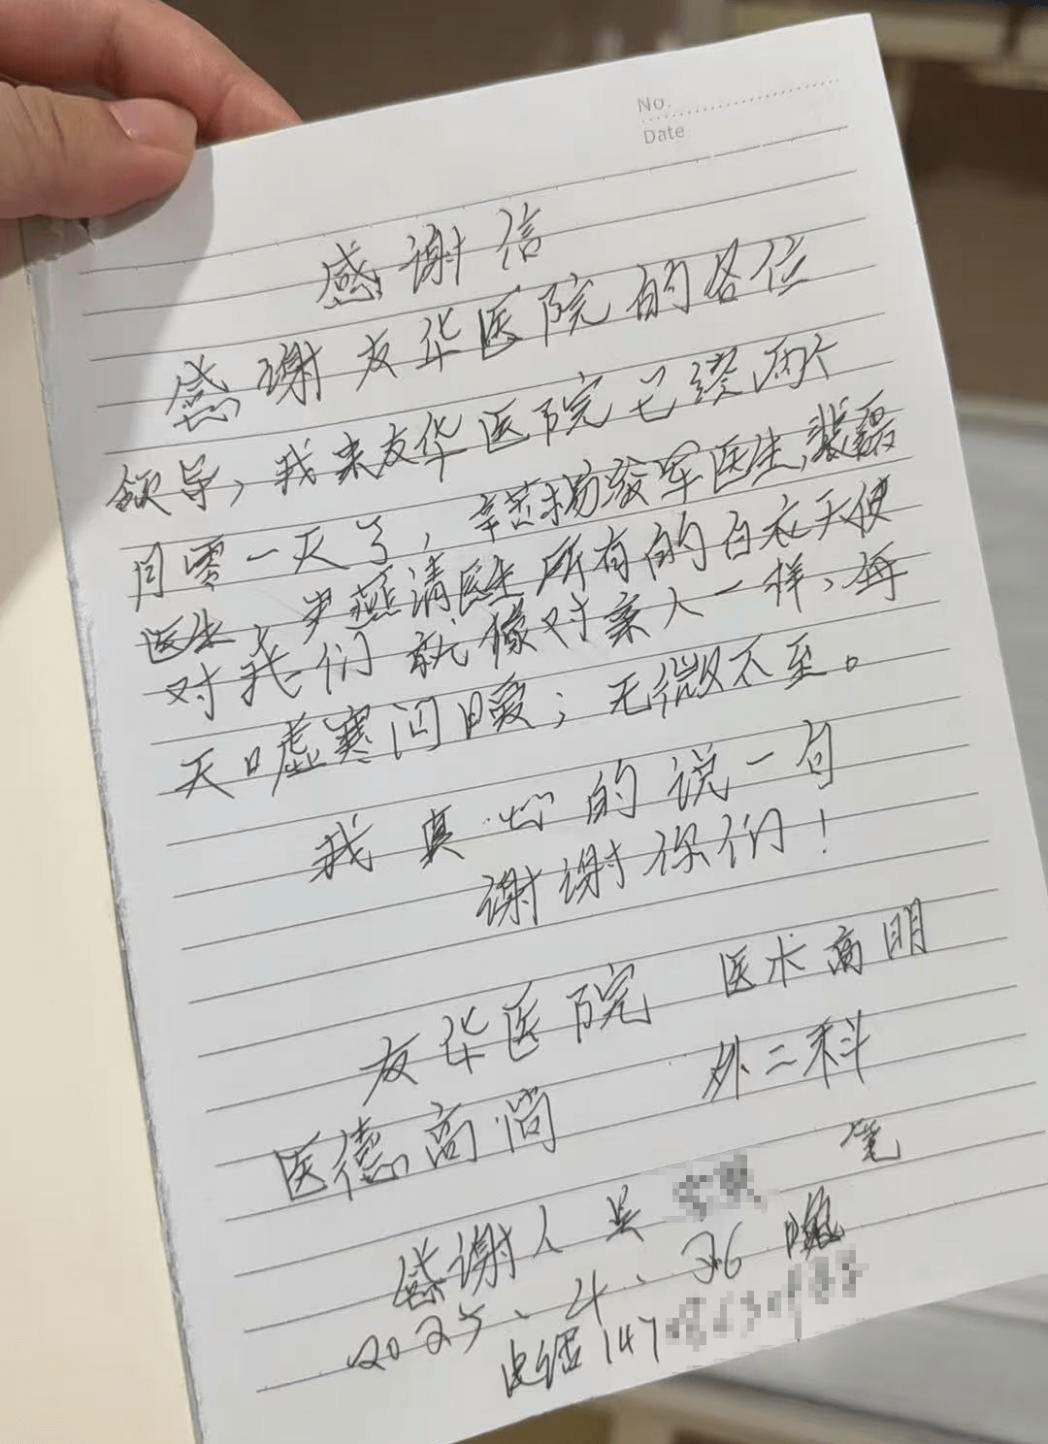 No.
Date
感谢信
感谢友华医院的各位
领导，我来友华医院已经两个
月零一天了，辛苦杨发军医生，裴磊
医生，尹燕清医生所有的白衣天使
对我们就像对亲人一样，每
天嘘寒问暖；无微不至。
我真心的说一句
谢谢你们！
友华医院 医术高明
医德高尚 外二科
感谢人 吴 笔
2025、4、26 晚
电话147